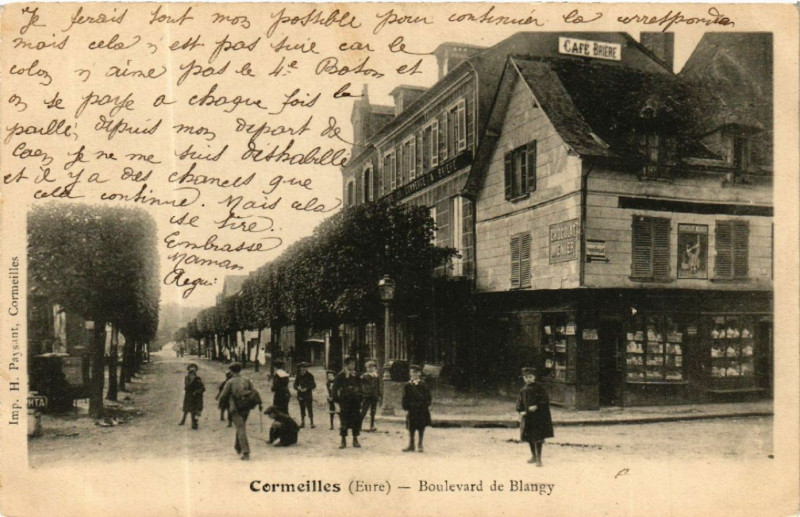 Je ferais tout mon possible pour continuer la correspondan
mais cela n est pas sure car le
colon n aime pas le 4e Baton et
on se paye a chaque fois la
paille, depuis mon depart de
Caen je ne me suis déshabille
et il y a des chances que
cela continue. Mais cela
se tire.
Embrasse
Maman
CAFÉ BRIÈRE
CHOCOLAT
MENIER
Imp. H. Paysant, Cormeilles
Cormeilles (Eure) — Boulevard de Blangy